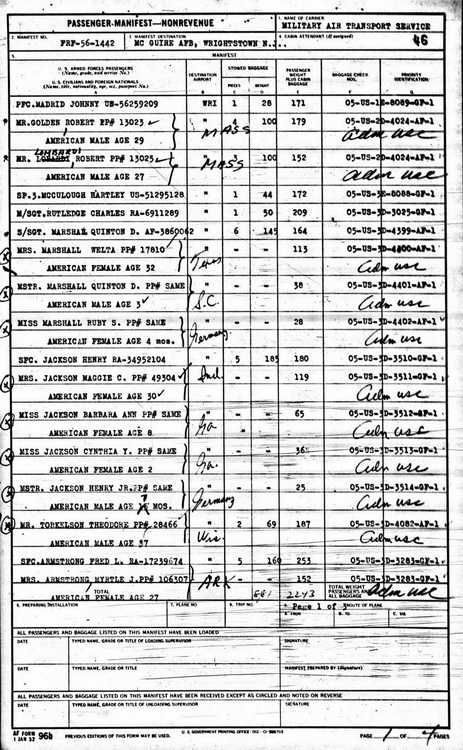 PASSENGER-MANIFEST—NONREVENUE
1. NAME OF CARRIER
MILITARY AIR TRANSPORT SERVICE
2. MANIFEST NO.
FRF-56-1442
3. MANIFEST DESTINATION
MC GUIRE AFB, WRIGHTSTOWN N.J.
4. CABIN ATTENDANT (If assigned)
46
5. MANIFEST
U.S. ARMED FORCES PASSENGERS
(Name, grade, and service No.)
U.S. CIVILIANS AND FOREIGN NATIONALS
(Name, title, nationality, age, sex, passport No.)
DESTINATION AIRPORT
STOWED BAGGAGE
PIECES WEIGHT
PASSENGER WEIGHT PLUS CABIN BAGGAGE
BAGGAGE CHECK NOS.
PRIORITY IDENTIFICATION
PFC.MADRID JOHNNY US-56259209 WRI 1 28 171 05-US-1E-8089-GF-1
MR.GOLDEN ROBERT PP# 13023 " 4 100 179 05-US-2D-4024-AF-1
AMERICAN MALE AGE 29 MASS adm usc
LOMBARDI
MR. ROBERT PP# 13025 " 100 152 05-US-2D-4024-AF-1
AMERICAN MALE AGE 27 MASS adm usc
SP.3.MCCULOUGH HARTLEY US-51295128 " 1 44 172 05-US-3E-8088-GF-1
M/SGT.RUTLEDGE CHARLES RA-6911289 " 1 50 209 05-US-3D-3025-GF-1
S/SGT. MARSHALL QUINTON D. AF-3860062 " 6 145 164 05-US-3D-4399-AF-1
MRS. MARSHALL WELTA PP# 17810 " - - 113 05-US-3D-4400-AF-1
AMERICAN FEMALE AGE 32 Texas Adm usc
MSTR. MARSHALL QUINTON D. PP# SAME " - - 38 05-US-3D-4401-AF-1
AMERICAN MALE AGE 3 S.C. Adm usc
MISS MARSHALL RUBY S. PP# SAME " - - 28 05-US-3D-4402-AF-1
AMERICAN FEMALE AGE 4 mos. Germany Adm usc
SFC. JACKSON HENRY RA-34952104 " 5 185 180 05-US-3D-3510-GF-1
MRS. JACKSON MAGGIE C. PP# 49304 - - 119 05-US-3D-3511-GF-1
AMERICAN FEMALE AGE 30 Adm usc
MISS JACKSON BARBARA ANN PP# SAME " - - 65 05-US-3D-3512-GF-1
AMERICAN FEMALE AGE 8 Ga. Adm usc
MISS JACKSON CYNTHIA Y. PP# SAME " - - 36 05-US-3D-3513-GF-1
AMERICAN FEMALE AGE 2 Ga. Adm usc
MSTR. JACKSON HENRY JR.PP# SAME " - - 25 05-US-3D-3514-GF-1
AMERICAN MALE AGE 7 MOS. Germany Adm usc
MR. TORKELSON THEODORE PP# 28466 " 2 69 187 05-US-3D-4082-AF-1
AMERICAN MALE AGE 37 Wis. Adm usc
SFC.ARMSTRONG FRED L. RA-17239674 " 5 160 253 05-US-3D-3283-GF-1
MRS. ARMSTRONG MYRTLE J.PP# 106307 - - 152 05-US-3D-3283-GF-1
AMERICAN FEMALE AGE 27 ARK adm usc
TOTAL 881 2243 TOTAL WEIGHT PASSENGERS AND ALL BAGGAGE
6. PREPARING INSTALLATION
7. PLANE NO.
8. TRIP NO.
Page 1 of 3
ROUTE OF PLANE
A. FROM
B. TO
C. VIA
ALL PASSENGERS AND BAGGAGE LISTED ON THIS MANIFEST HAVE BEEN LOADED
DATE TYPED NAME, GRADE OR TITLE OF LOADING SUPERVISOR SIGNATURE
DATE TYPED NAME, GRADE OR TITLE MANIFEST PREPARED BY (Signature)
ALL PASSENGERS AND BAGGAGE LISTED ON THIS MANIFEST HAVE BEEN RECEIVED EXCEPT AS CIRCLED AND NOTED ON REVERSE
DATE TYPED NAME, GRADE OR TITLE OF UNLOADING SUPERVISOR SIGNATURE
AF FORM 96b
1 JAN 52
PREVIOUS EDITIONS OF THIS FORM MAY BE USED.
U. S. GOVERNMENT PRINTING OFFICE
PAGE 1 OF 4 PAGES